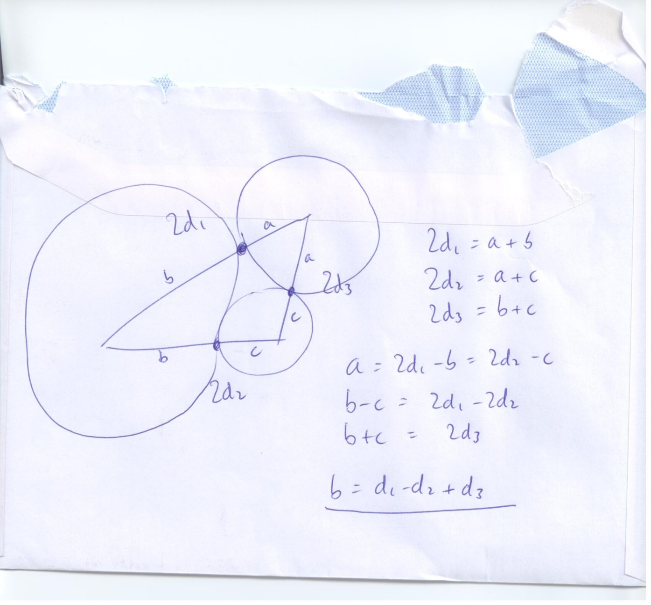 2d₁
a
a
b
2d₃
c
b
c
2d₂
2d₁ = a + b
2d₂ = a + c
2d₃ = b + c
a = 2d₁ - b = 2d₂ - c
b - c = 2d₁ - 2d₂
b + c = 2d₃
b = d₁ - d₂ + d₃